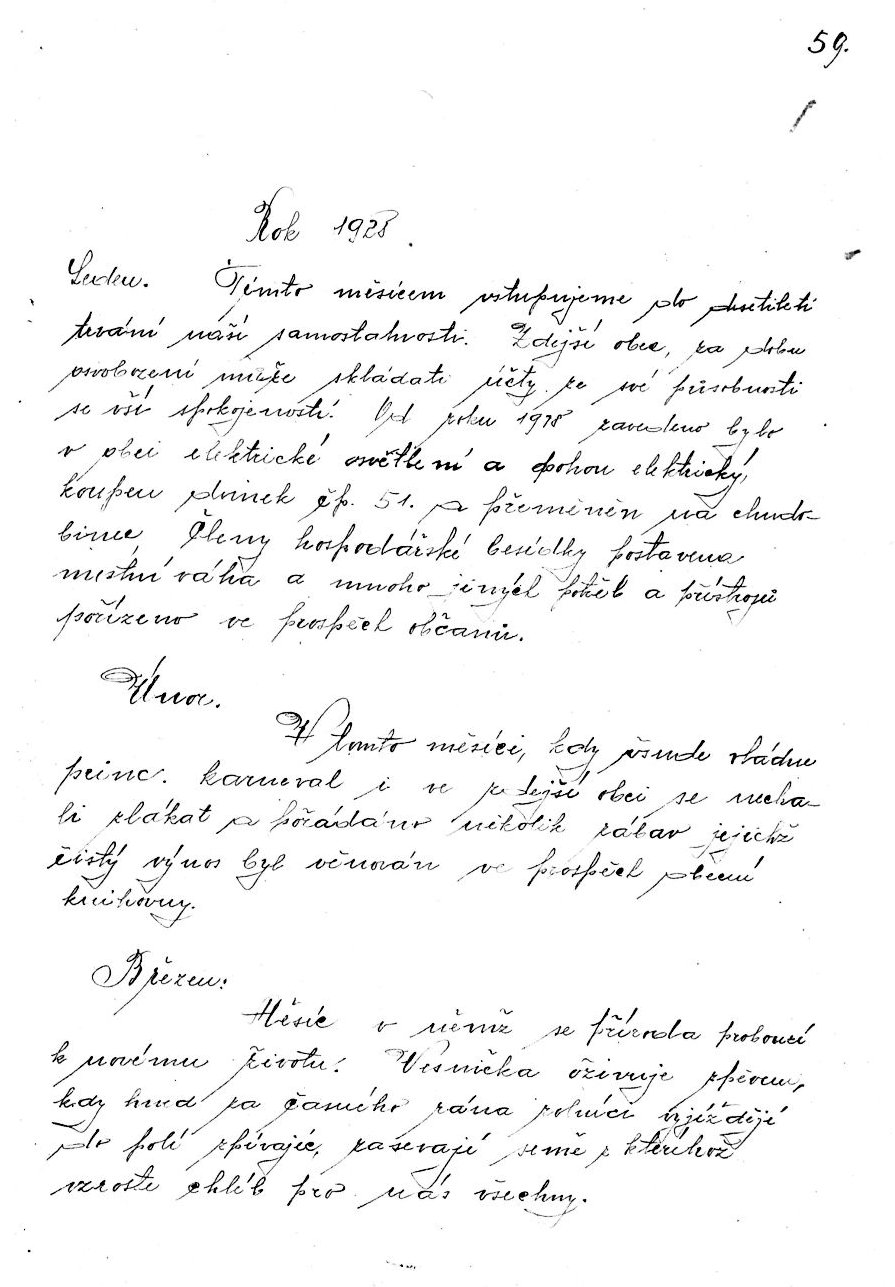 59.
Rok 1928.
Leden. Tímto měsícem vstupujeme do desítiletí
trvání naší samostatnosti. Zdejší obec, za dobu
osvobození může skládati účty ze své působnosti
se vší spokojeností. Od roku 1918 zavedeno bylo
v obci elektrické osvětlení a pohon elektrický,
koupen domek čp. 51. a přeměněn na chudo-
binec. Členy hospodářské besídky postavena
mostní váha a mnoho jiných potřeb a přístrojů
pořízeno ve prospěch občanů.
Únor.
V tomto měsíci, kdy všude vládne
princ. karneval i ve zdejší obci se necha-
li zlákat a pořádáno několik zábav jejichž
čistý výnos byl věnován ve prospěch obecní
knihovny.
Březen:
Měsíc v němž se příroda probouzí
k novému životu. Vesnička oživuje zpěvem,
kdy hned za časného rána rolníci vyjíždějí
do polí zpívajíc, zasevají símě z kteréhož
vzroste chléb pro nás všechny.